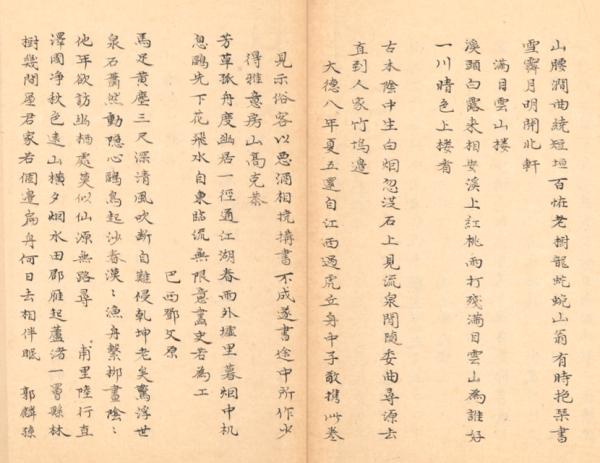 山腰澗曲繞短垣百恠老樹龍蛇蜿山翁有時抱琴書
雪霽月明開北軒
滿目雲山樓
溪頭白鷺來相安溪上紅桃雨打殘滿目雲山為誰好
一川晴色上樓看
古木陰中生白烟忽從石上見流泉閒隨委曲尋源去
直到人家竹塢邊
大德八年夏五還自江西過虎丘身中子敬攜此卷
見示俗客以惡酒相撓搆書不成遂書途中所作少
得雅意房山高克恭
芳草孤舟度幽居一徑通江湖春雨外墟里暮烟中机
息鷗先下花飛水自東臨流無限意畫史若為工
巴西鄧文原
馬足黃塵三尺深清風吹斷自難侵乾坤老矣驚浮世
泉石蕭然動隱心鷗鳥起沙春漠漠漁舟繫柳晝陰陰
他年欲訪幽栖處莫似仙源無路尋 甫里陸行直
澤國净秋色遠山橫夕烟水田郡雁起蘆渚一罾懸林
樹幾間屋君家若個邊扁舟何日去相伴眠 郭麟孫